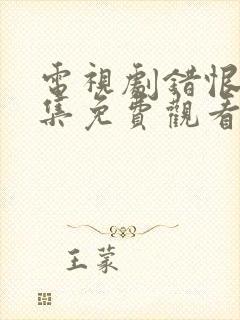 電視劇錯恨
集免費觀看
王蒙